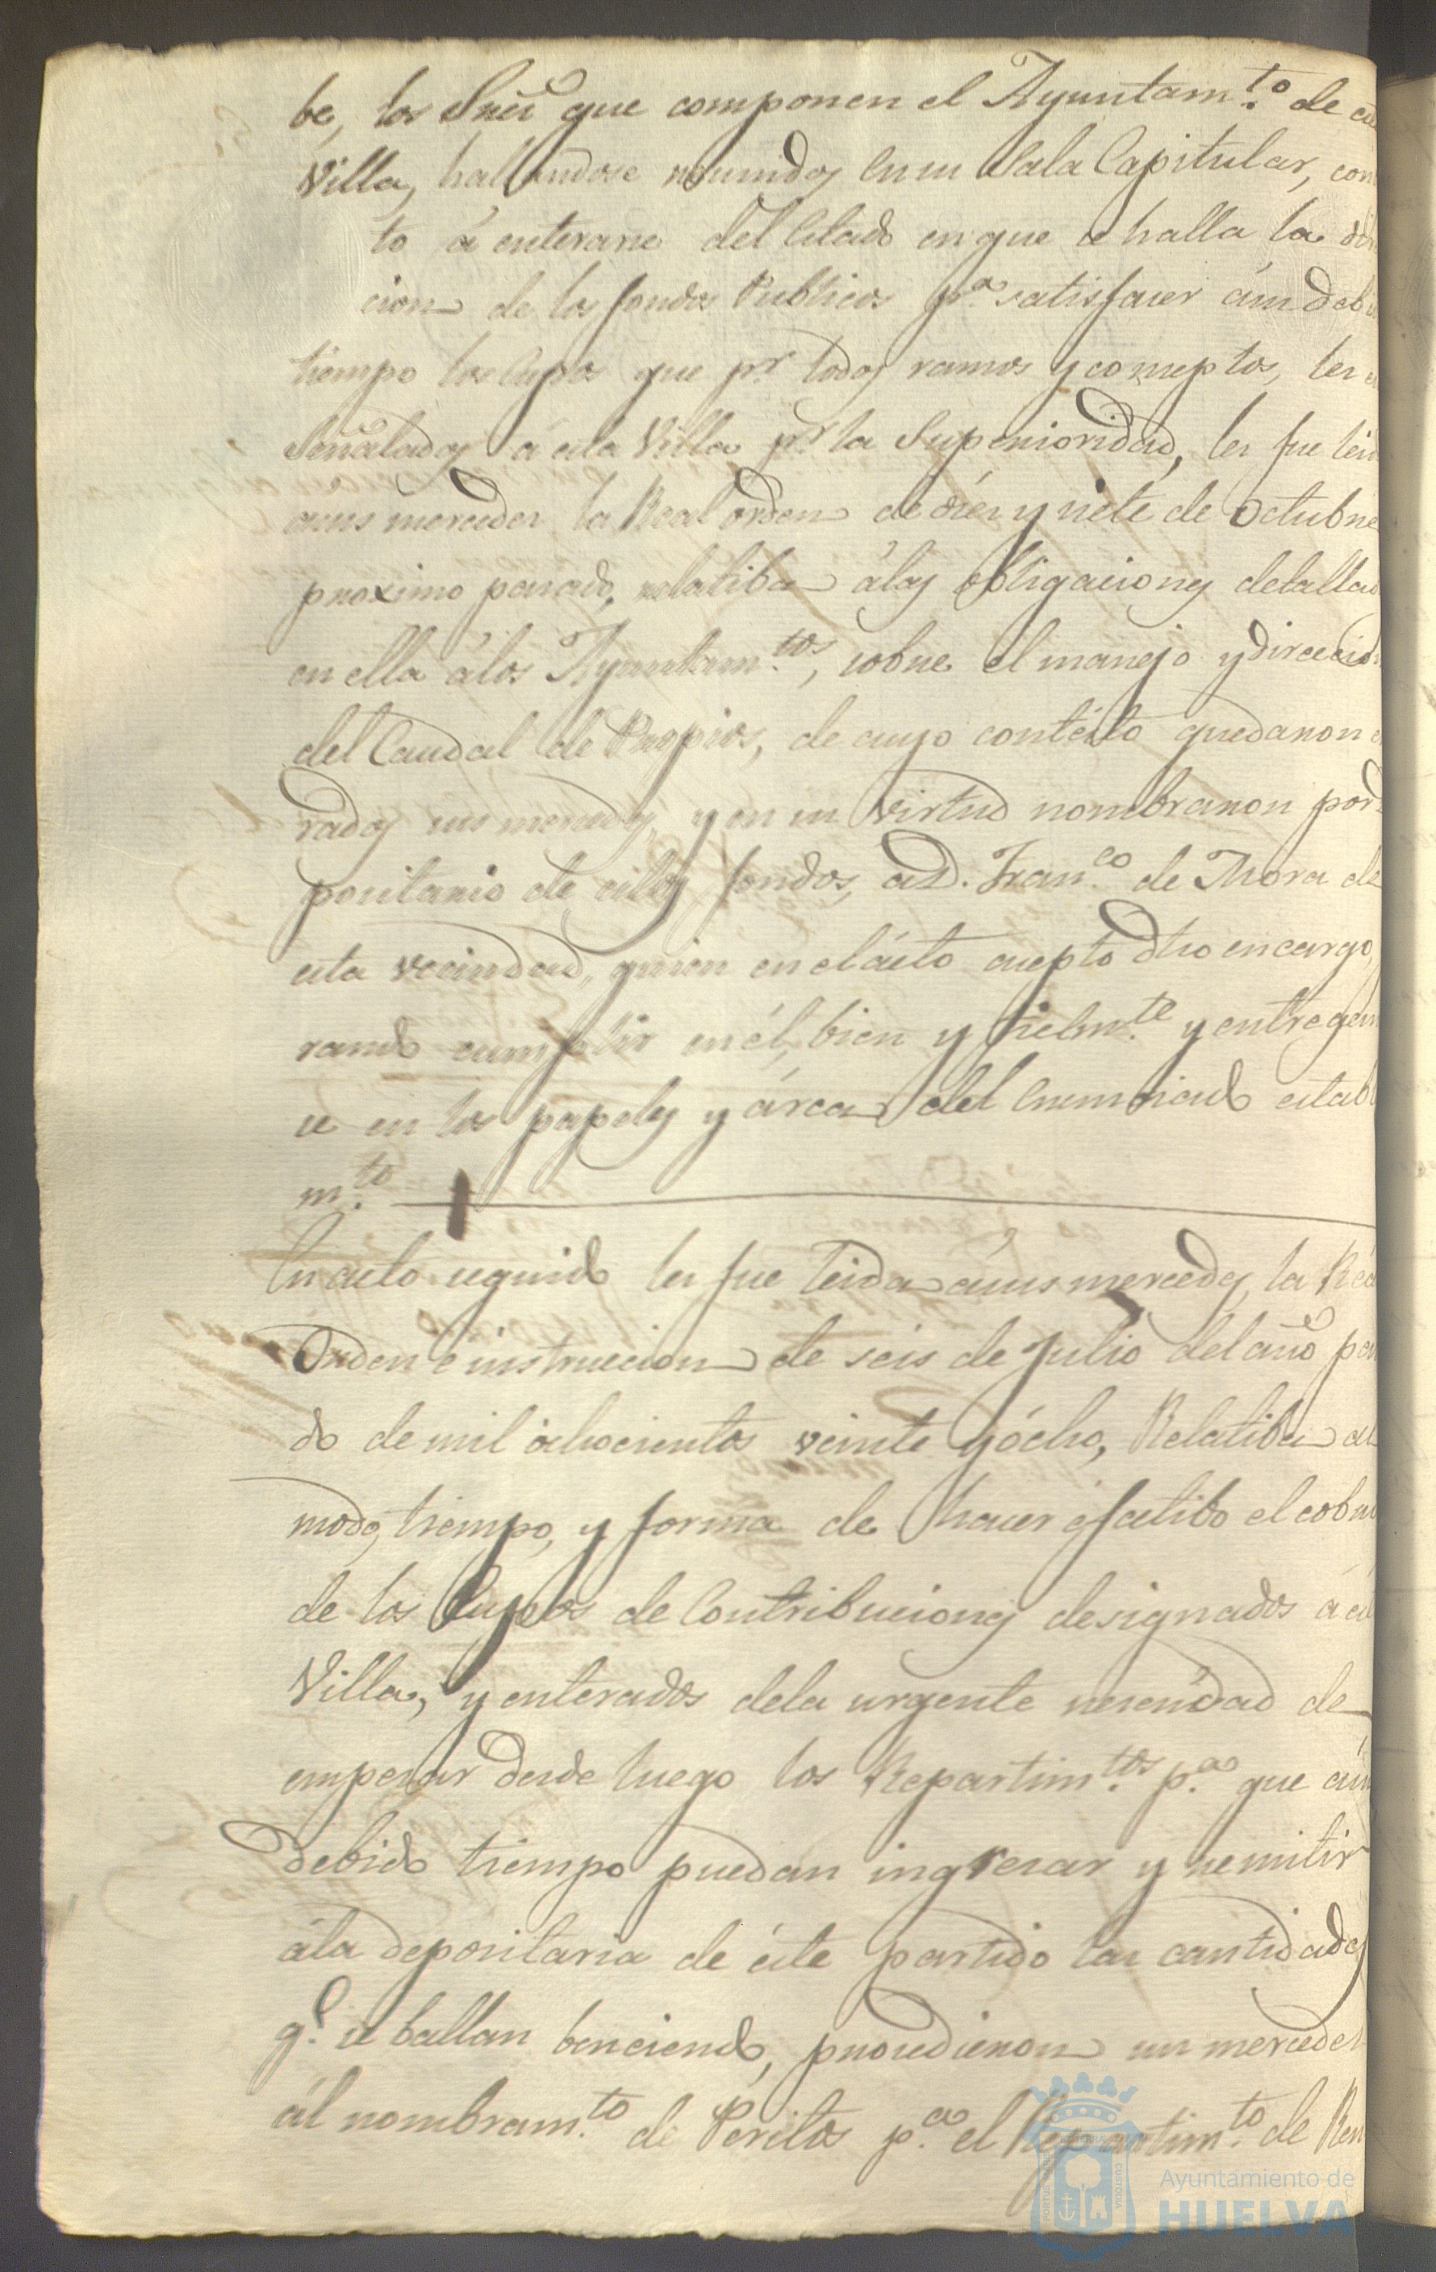 be, los Sres que componen el Ayuntam.to de esta
Villa, hallandose reunidos en su Sala Capitular, con
to á enterarse del Estado en que se halla la
cion de los fondos Publicos p.a satisfacer á su deb
tiempo los Cupos que p.r todos ramos y conseptos, les
Señalados á esta Villa p.r la Superioridad, les fue leid
a sus mercedes la Real orden de dies y siete de Octubre
proximo pasado, relatiba á las obligaciones detallad
en ella á los Ayuntam.tos, sobre el manejo y direccion
del Caudal de Propios, de cuyo contésto quedaron
rados sus mercedes, y en su virtud nombraron por
positario de dichos fondos, a D. Fran.co de Mora de
esta vecindad, quien en el ácto acepto dho encargo,
rando cumplir en él, bien y fielm.te y entregan
se en los papeles y árcas del enunciado establ
m.to
En acto seguido les fue leida á sus mercedes, la Rea
Orden é instruccion de seis de Julio del año pa
do de mil ochocientos veinte y ócho, Relatiba al
modo, tiempo, y forma de hacer éfectibo el cobro
de los Cupos de Contribuciones designados á es
Villa, y enterados de la urgente nesesidad de
empesar desde luego los Repartim.tos p.a que á su
debido tiempo puedan ingresar y remitir
á la depositaria de éste partido las cantidades
q.e se hallan benciendo, prosedieron sus mercedes
ál nombram.to de Peritos p.a el Repartim.to de Ren
Ayuntamiento de
HUELVA